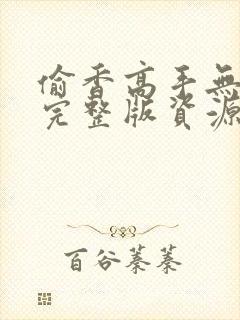 偷香高手無
完整版資源
百谷蓁蓁